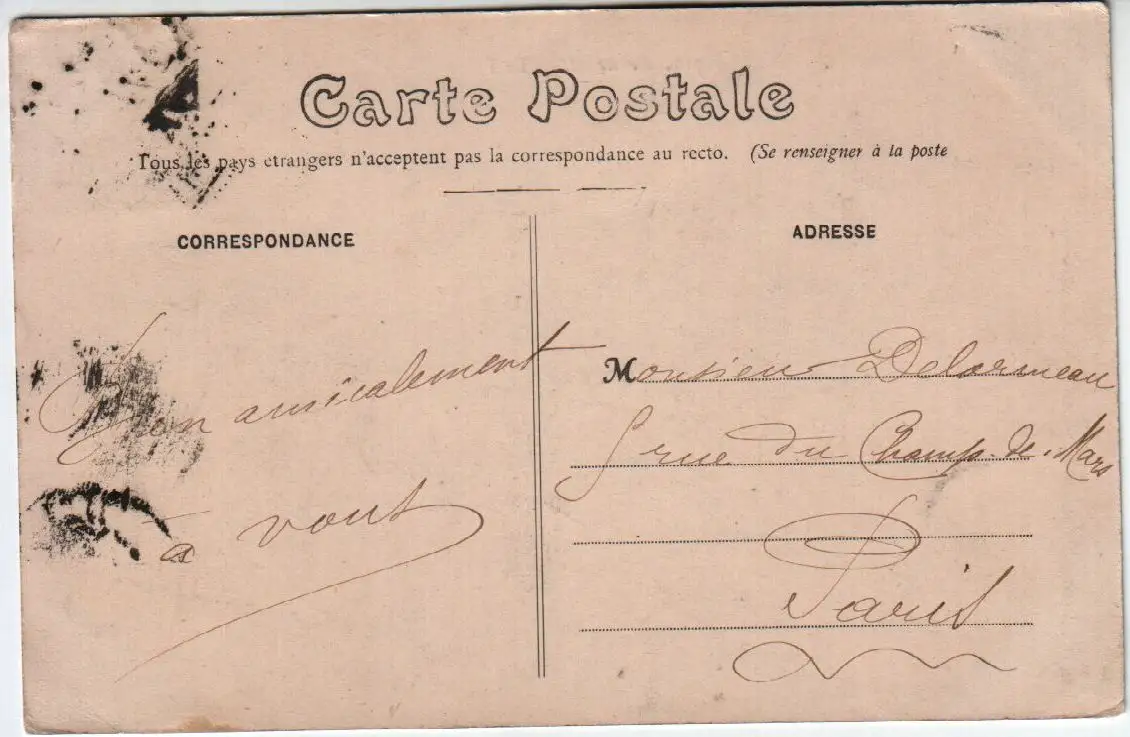 Carte Postale
Tous les pays etrangers n'acceptent pas la correspondance au recto. (Se renseigner à la poste
CORRESPONDANCE
amicalement
à vous
ADRESSE
Monsieur Delormeau
rue du Champ-de-Mars
Paris